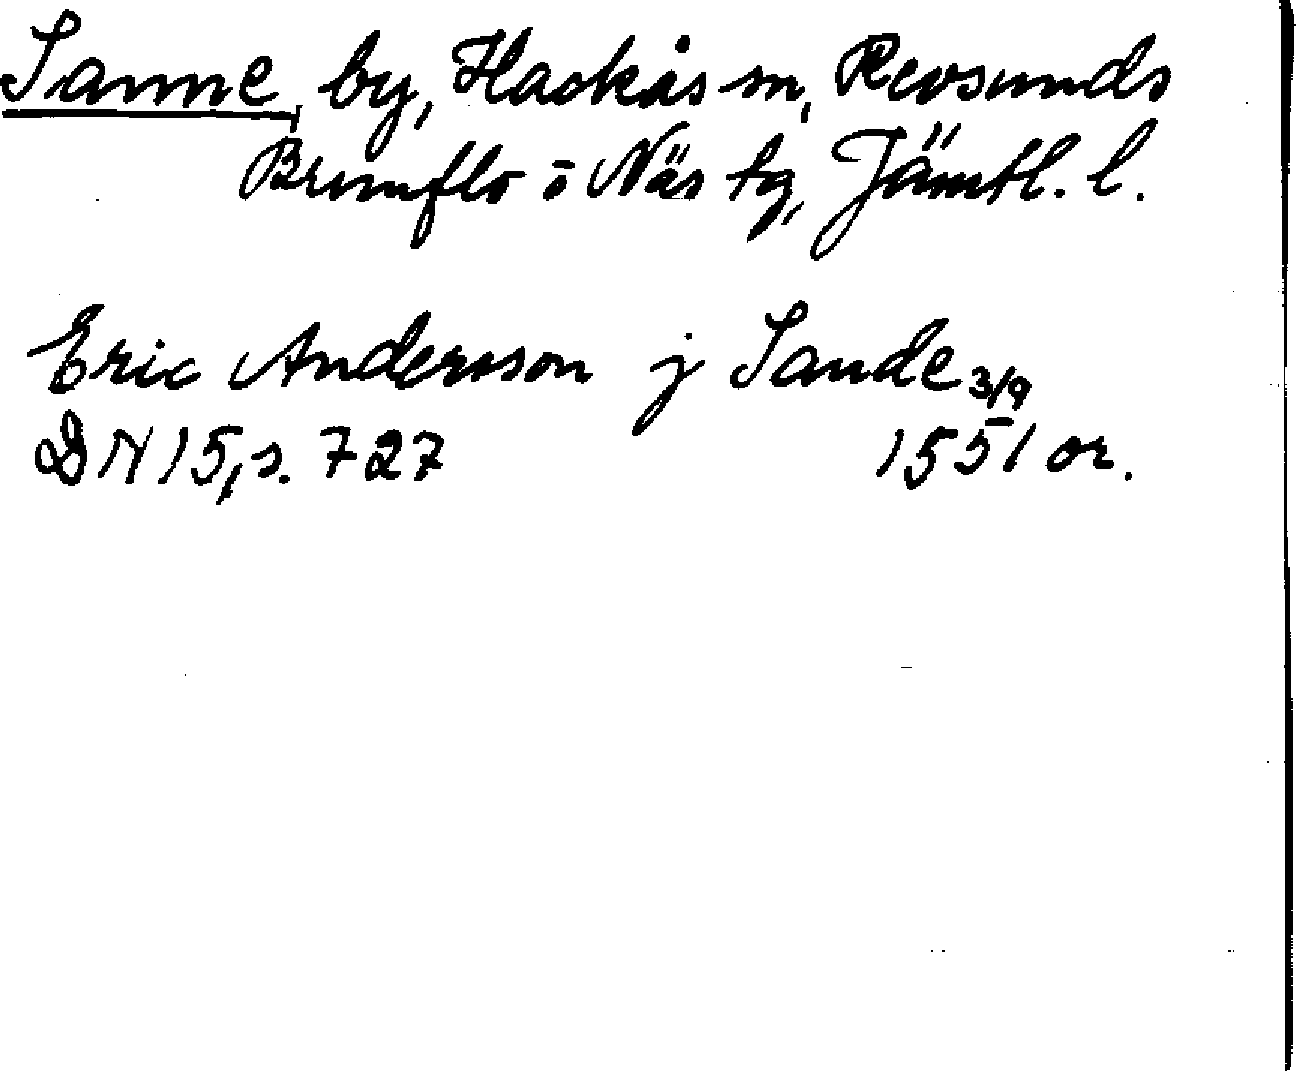 Sanne, by, Hackås sn, Revsunds
Brunflo o Näs tg, Jämtl. l.
Eric Andersson j Sande 3/9
DN 15, s. 727 1551 or.